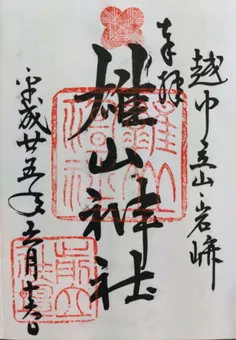 越中立山岩峅
奉拝
雄山神社
平成廿五年 月十六日
雄山神社
前立社壇